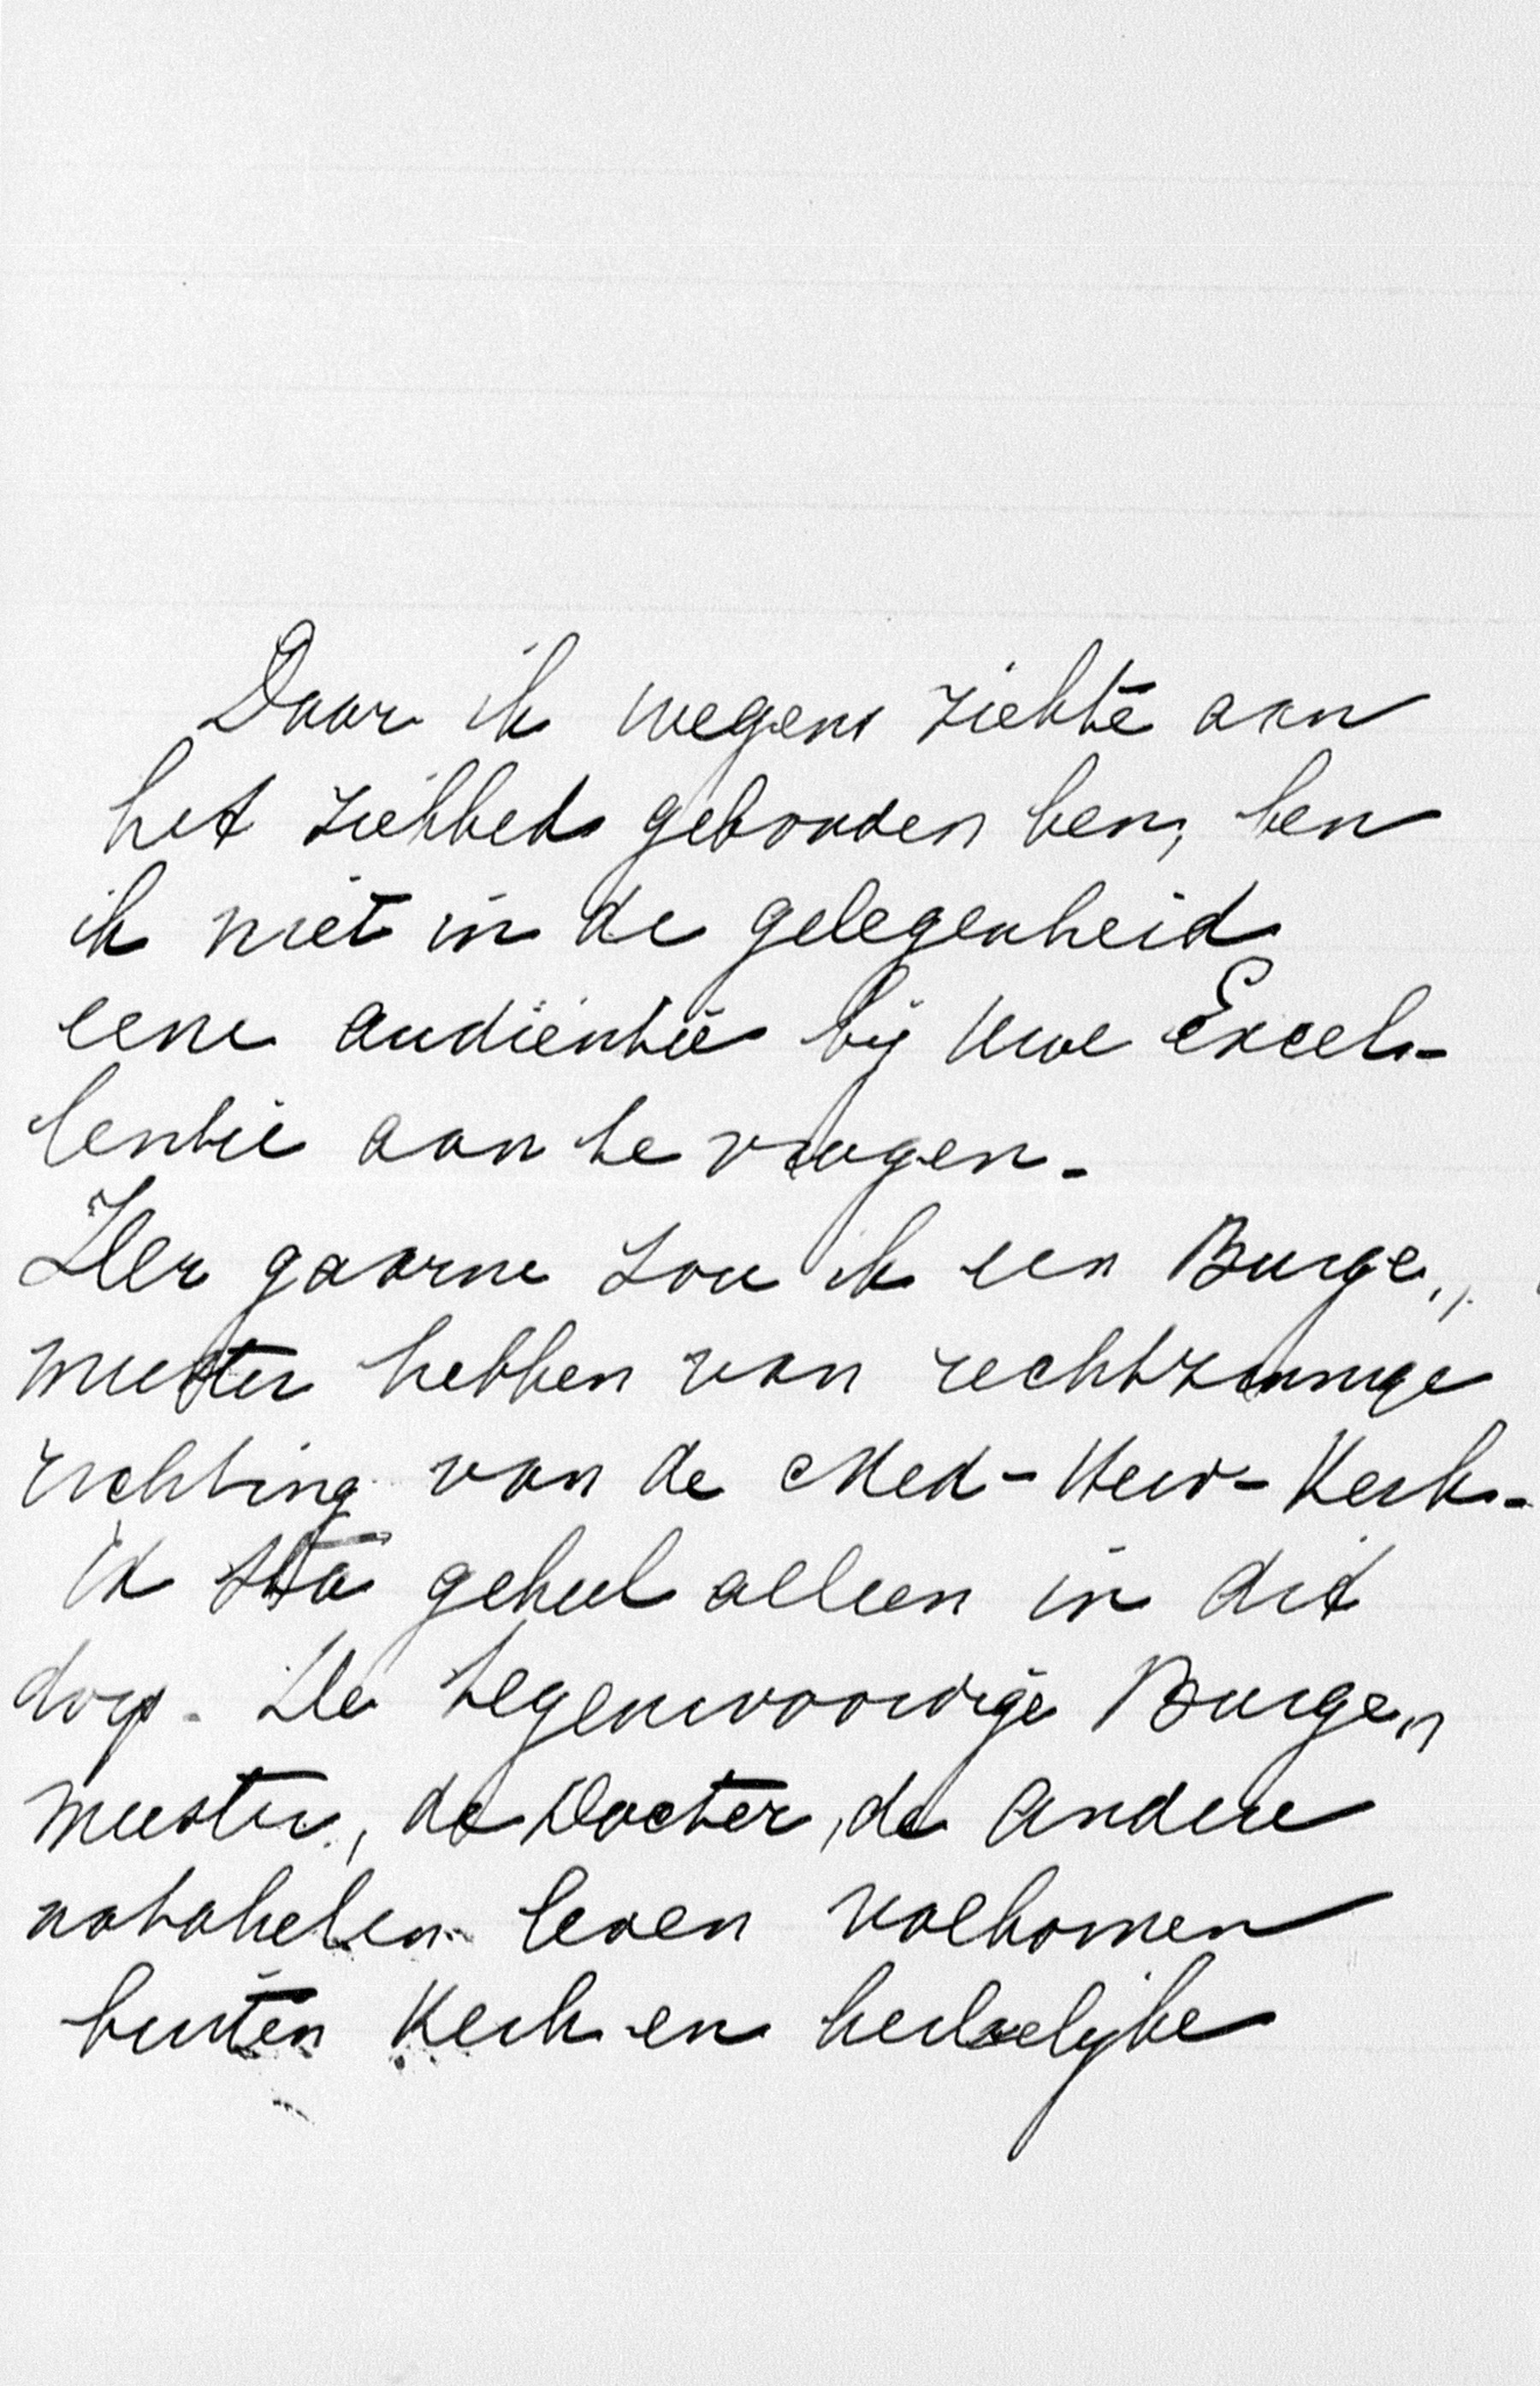 Daar ik wegens ziekte aan
het ziekbed gebonden ben, ben
ik niet in de gelegenheid
eene audiëntie bij Uwe Excel-
lentie aan te vragen.
Zeer gaarne zou ik een Burge„
meester hebben van rechtzinnige
richting van de Ned-Herv-Kerk.
Ik sta geheel alleen in dit
dorp. De tegenwoordige Burge„
meester, de Docter, de andere
notabelen leven volkomen
buiten Kerk en kerkelijke